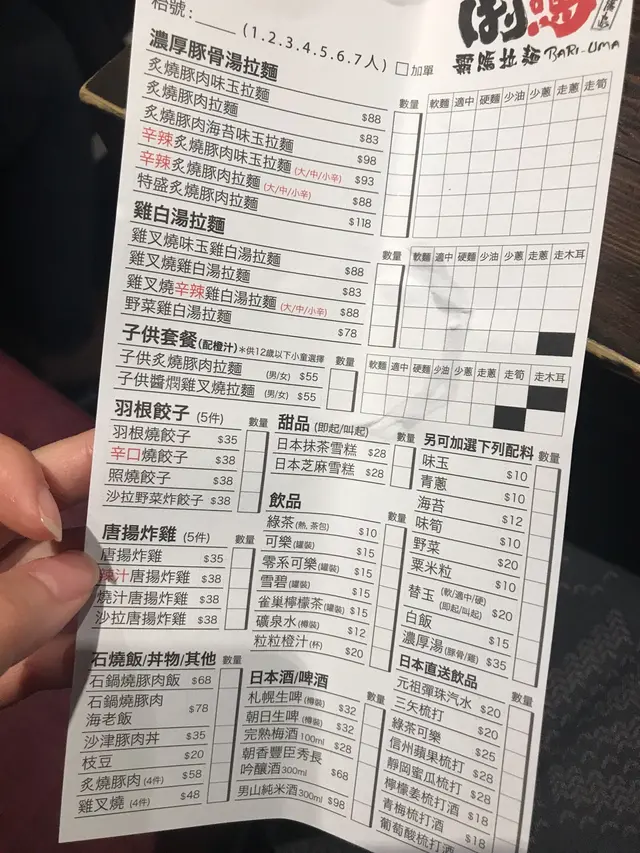 枱號:____ (1.2.3.4.5.6.7人) □加單
霸嗎拉麵 BARI-UMA
濃厚豚骨湯拉麵 數量 軟麵 適中 硬麵 少油 少蔥 走蔥 走筍
炙燒豚肉味玉拉麵 $88
炙燒豚肉拉麵 $83
炙燒豚肉海苔味玉拉麵 $98
辛辣炙燒豚肉味玉拉麵 (大/中/小辛) $93
辛辣炙燒豚肉拉麵 (大/中/小辛) $88
特盛炙燒豚肉拉麵 $118
雞白湯拉麵 數量 軟麵 適中 硬麵 少油 少蔥 走蔥 走木耳
雞叉燒味玉雞白湯拉麵 $88
雞叉燒雞白湯拉麵 $83
雞叉燒辛辣雞白湯拉麵 (大/中/小辛) $88
野菜雞白湯拉麵 $78
子供套餐 (配橙汁) *供12歲以下小童選擇 數量 軟麵 適中 硬麵 少油 少蔥 走蔥 走筍 走木耳
子供炙燒豚肉拉麵 (男/女) $55
子供醬燜雞叉燒拉麵 (男/女) $55
羽根餃子 (5件) 數量
羽根燒餃子 $35
辛口燒餃子 $38
照燒餃子 $38
沙拉野菜炸餃子 $38
唐揚炸雞 (5件) 數量
唐揚炸雞 $35
辣汁唐揚炸雞 $38
燒汁唐揚炸雞 $38
沙拉唐揚炸雞 $38
石燒飯/丼物/其他 數量
石鍋燒豚肉飯 $68
石鍋燒豚肉
海老飯 $78
沙津豚肉丼 $35
枝豆 $20
炙燒豚肉 (4件) $58
雞叉燒 (4件) $48
甜品 (即起/叫起) 數量
日本抹茶雪糕 $28
日本芝麻雪糕 $28
飲品 數量
綠茶 (熱, 茶包) $10
可樂 (罐裝) $15
零系可樂 (罐裝) $15
雪碧 (罐裝) $15
雀巢檸檬茶 (罐裝) $15
礦泉水 (樽裝) $12
粒粒橙汁 (杯) $20
日本酒/啤酒 數量
札幌生啤 (樽裝) $32
朝日生啤 (樽裝) $32
完熟梅酒 100ml $28
朝香豐臣秀長
吟釀酒 300ml $68
男山純米酒 300ml $98
另可加選下列配料 數量
味玉 $10
青蔥 $10
海苔 $12
味筍 $10
野菜 $20
粟米粒 $10
替玉 (軟/適中/硬) (即起/叫起) $20
白飯 $15
濃厚湯 (豚骨/雞) $35
日本直送飲品 數量
元祖彈珠汽水 $20
三矢梳打 $20
綠茶可樂 $25
信州蘋果梳打 $28
靜岡蜜瓜梳打 $28
檸檬姜梳打酒 $18
青梅梳打酒 $18
葡萄酸梳打酒 $18